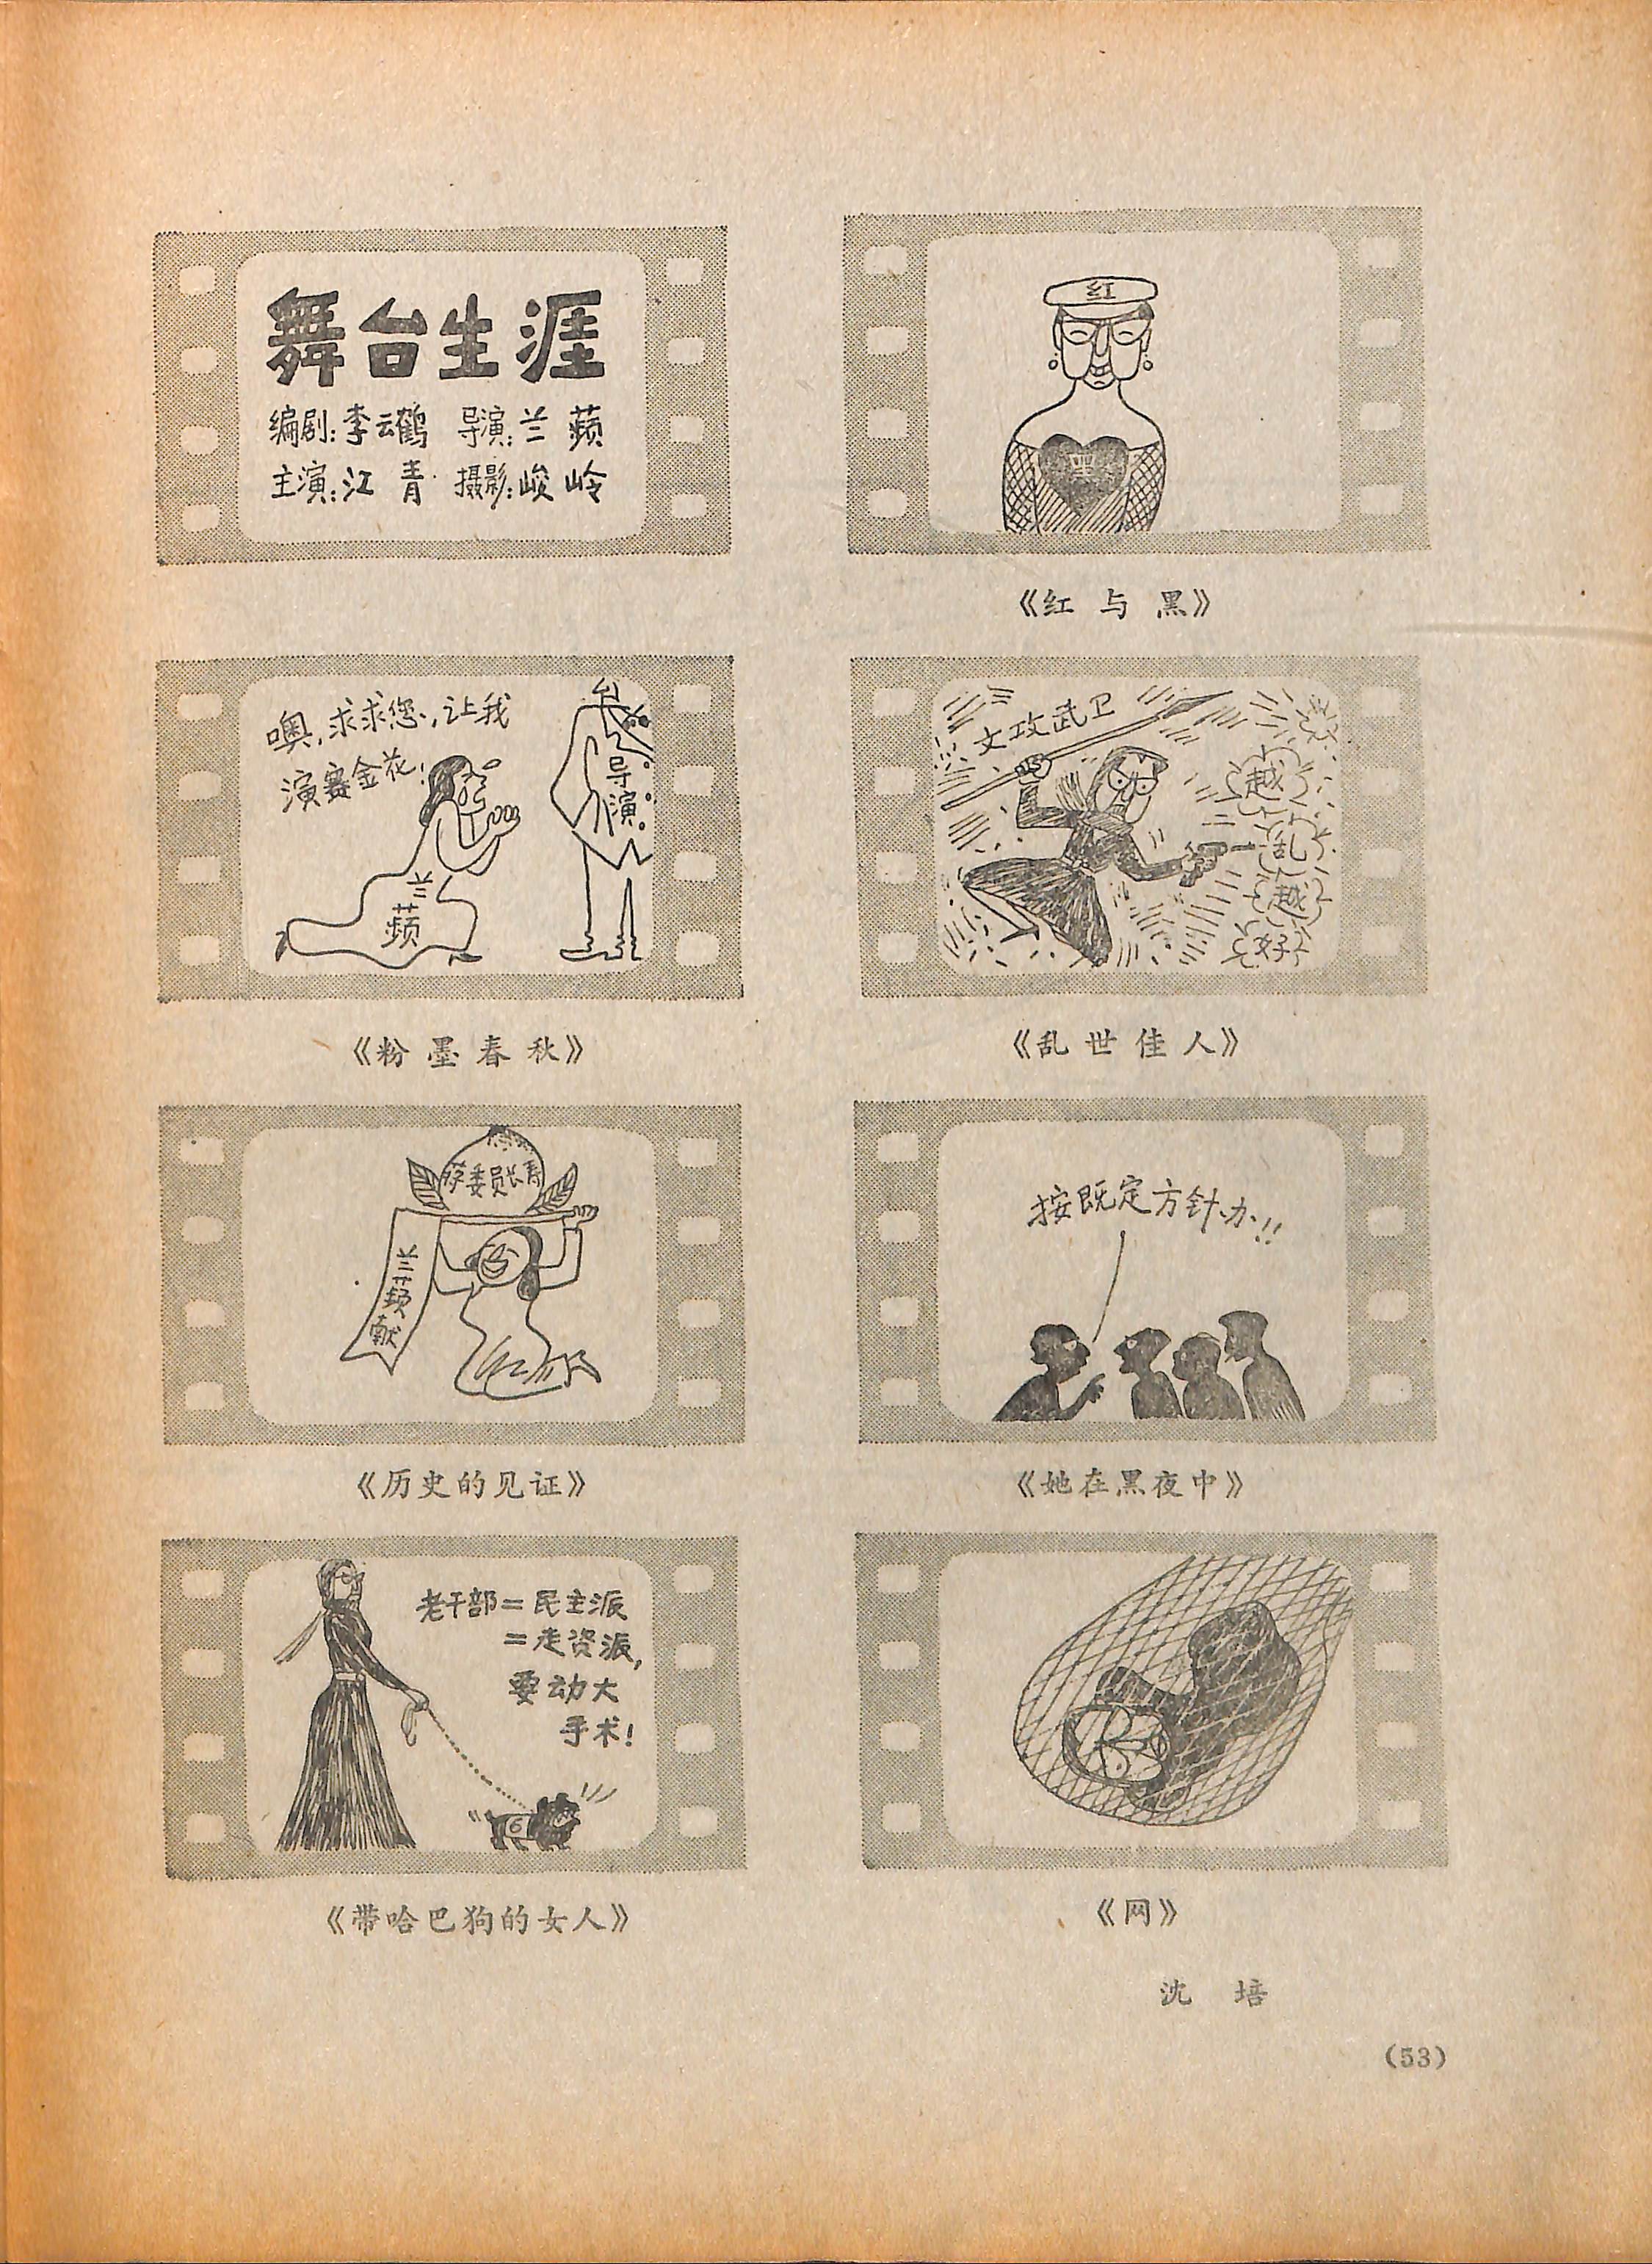 舞台生涯
编剧:李云鹤 导演:兰蘋
主演:江青 摄影:峻岭
红
黑
《红与黑》
噢,求求您,让我
演赛金花!
兰
蘋
导
演
《粉墨春秋》
文攻武卫
越
乱
越
好
《乱世佳人》
蒋委员长寿
兰
蘋
献
《历史的见证》
按既定方针办!!
《她在黑夜中》
老干部=民主派
=走资派,
要动大
手术!
6
《带哈巴狗的女人》
《网》
沈培
(53)